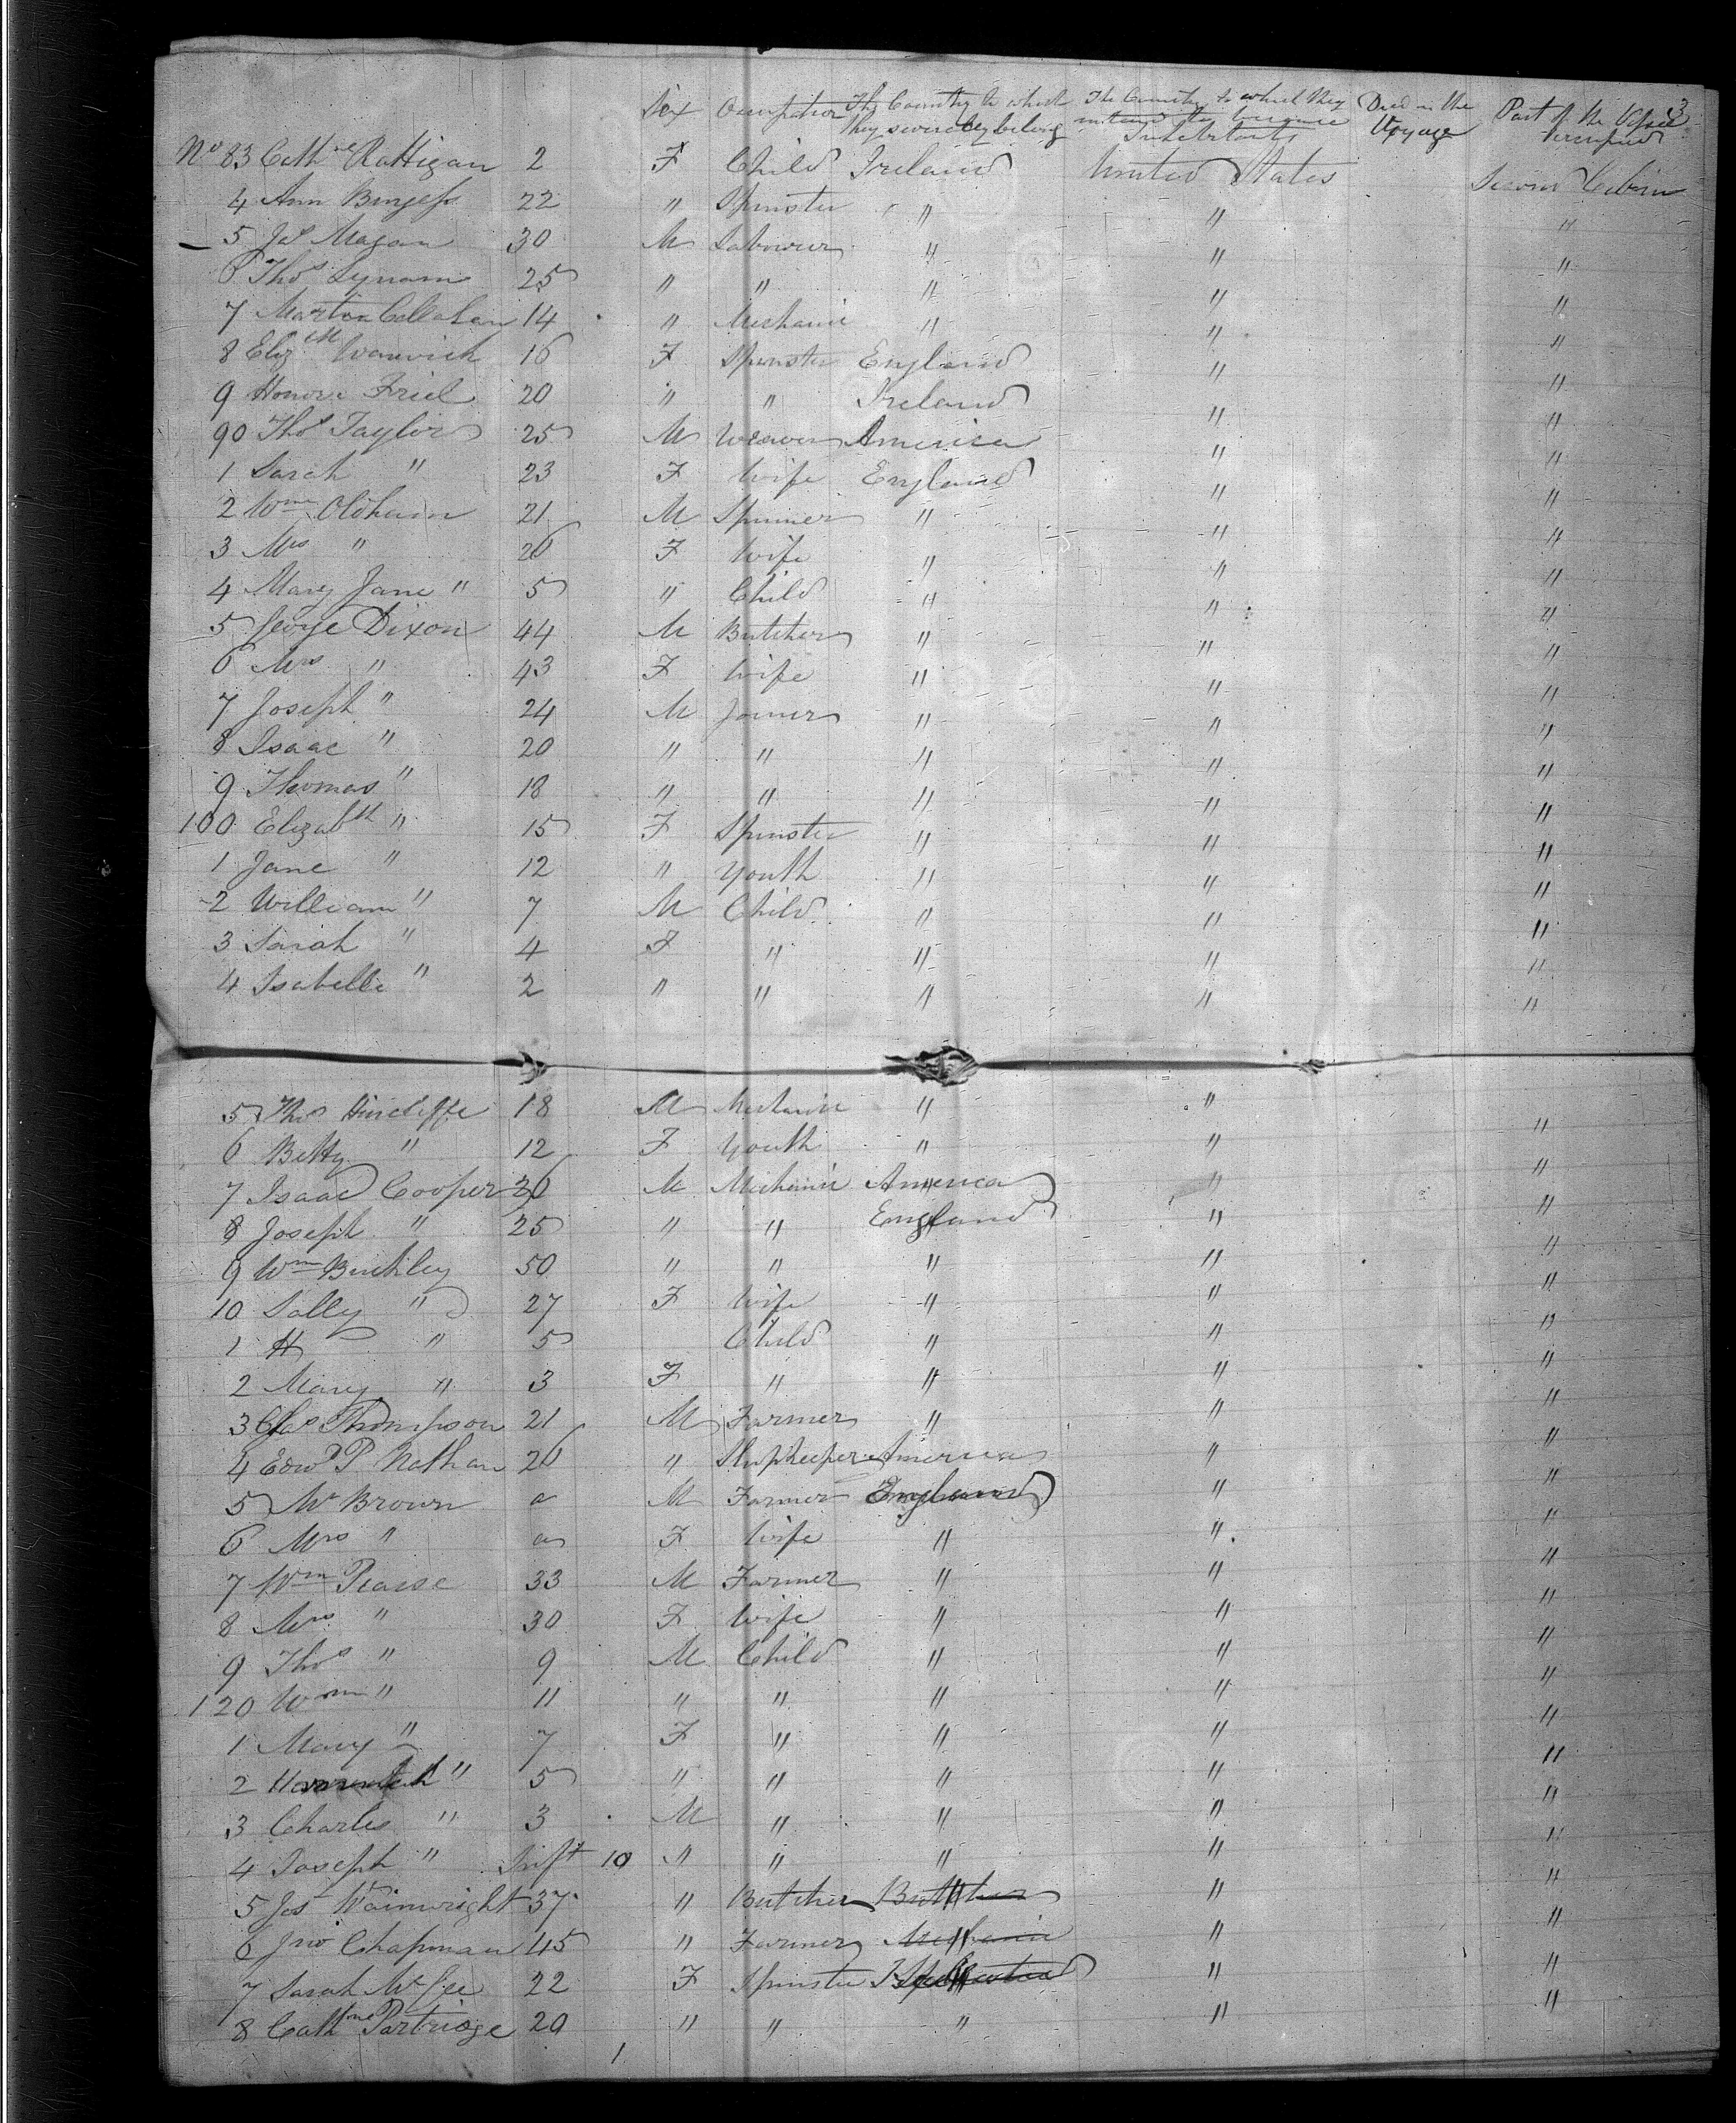 3
Sex Occupation The Country to which they severally belong The Country to which they intend to become Inhabitants Died on the Voyage Part of the Vessel occupied
No 83 Cathne Rattigan 2 F Child Ireland United States Second Cabin
4 Ann Burgess 22 " Spinster " " "
5 Jas Magan 30 M Labourer " " "
6 Thos Lynam 25 " " " " "
7 Martin Callahan 14 " Mechanic " " "
8 Elizth Warwick 16 F Spinster England " "
9 Honora Friel 20 " " Ireland " "
90 Thos Taylor 25 M Weaver America " "
1 Sarah " 23 F Wife England " "
2 Wm Oldham 21 M Spinner " " "
3 Mrs " 26 F Wife " " "
4 Mary Jane " 5 " Child " " "
5 George Dixon 44 M Butcher " " "
6 Mrs " 43 F Wife " " "
7 Joseph " 24 M Joiner " " "
8 Isaac " 20 " " " " "
9 Thomas " 18 " " " " "
100 Elizabth " 15 F Spinster " " "
1 Jane " 12 " Youth " " "
2 William " 7 M Child " " "
3 Sarah " 4 F " " " "
4 Isabella " 2 " " " " "
5 Thos Hincliffe 18 M Mechanic " " "
6 Betty " 12 F Youth " " "
7 Isaac Cooper 36 M Mechanic America " "
8 Joseph " 25 " " England " "
9 Wm Buckley 50 " " " " "
10 Sally " 27 F Wife " " "
1 H " 5 Child " " "
2 Mary " 3 F " " " "
3 Chas Thompson 21 M Farmer " " "
4 Edwd P Nathan 26 " Shopkeeper America " "
5 Mr Brown a M Farmer England " "
6 Mrs " a F Wife " " "
7 Wm Pearse 33 M Farmer " " "
8 Mrs " 30 F Wife " " "
9 Thos " 9 M Child " " "
120 Wm " 11 " " " " "
1 Mary " 7 F " " " "
2 " 5 " " " " "
3 Charles " 3 M " " " "
4 Joseph " Inft 10 " " " " "
5 Jos Wainwright 37 " Butcher Butcher " "
6 Jno Chapman 45 " Farmer Mechanic " "
7 Sarah McGee 22 F Spinster " "
8 Cathne Partridge 20 " " " " "
1